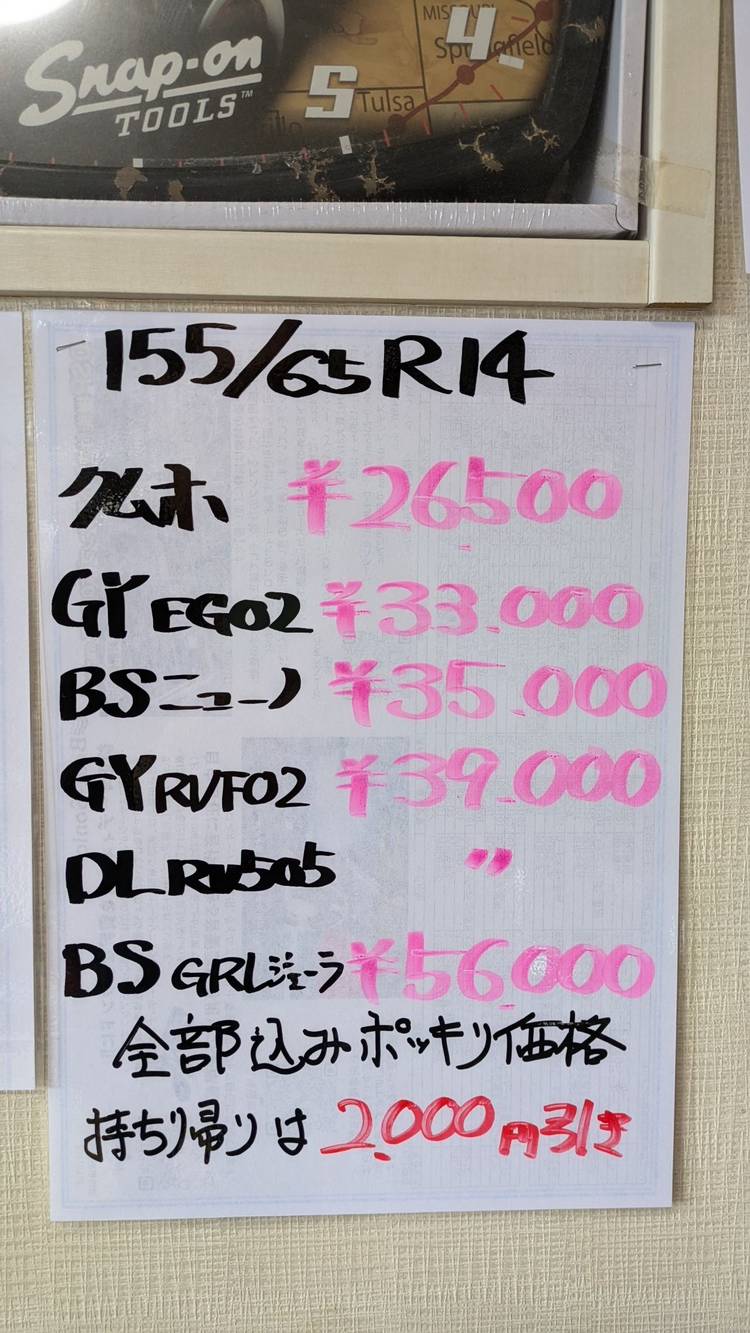 MISSOURI
Springfield
4
Snap-on
TOOLS™
5
Tulsa
155/65R14
クムホ ¥26500
GY EG02 ¥33.000
BSニューノ ¥35.000
GY RVF02 ¥39.000
DL RV505 〃
BS GRLジェーラ ¥56.000
全部込みポッキリ価格
持ちり帰りは2.000円引き